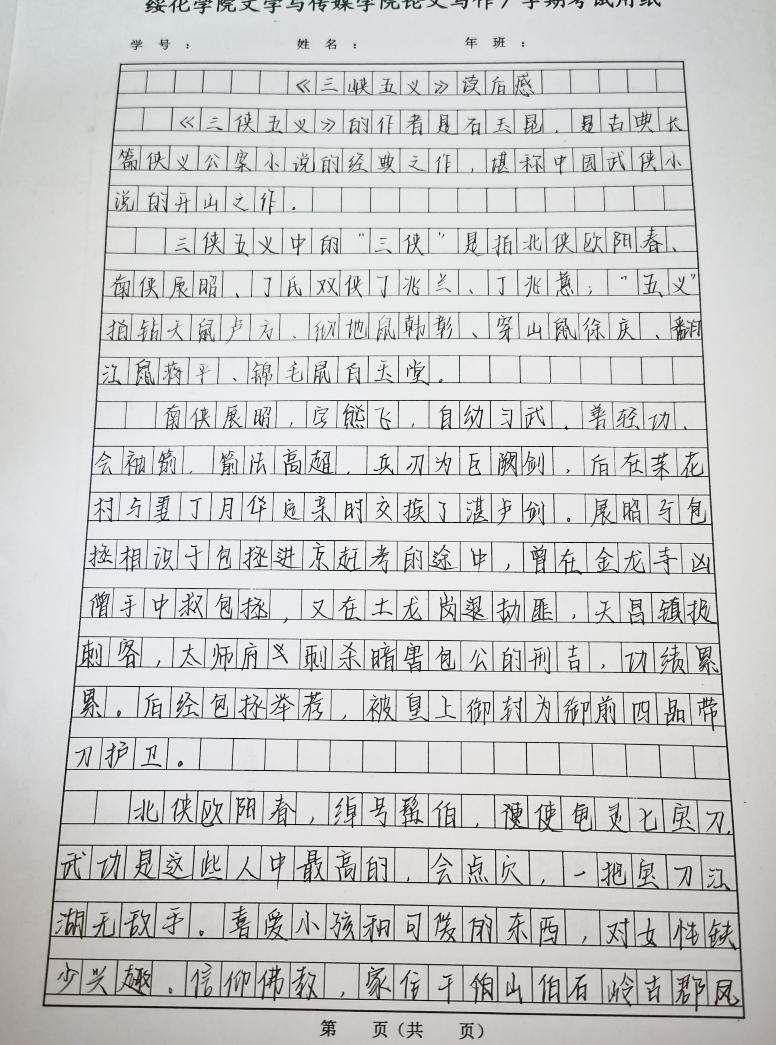 绥化学院文学与传媒学院论文写作/学期考试用纸
学号： 姓名： 年班：
《三峡五义》读后感
《三侠五义》的作者是石玉昆，是古典长
篇侠义公案小说的经典之作，堪称中国武侠小
说的开山之作。
三侠五义中的“三侠”是指北侠欧阳春、
南侠展昭、丁氏双侠丁兆兰、丁兆蕙；“五义”
指钻天鼠卢方、彻地鼠韩彰、穿山鼠徐庆、翻
江鼠蒋平、锦毛鼠白玉堂。
南侠展昭，字熊飞，自幼习武、善轻功、
会袖箭，箭法高超，兵刃为巨阙剑，后在茉花
村与丁月华定亲时交换了湛卢剑。展昭与包
拯相识于包拯进京赶考的途中，曾在金龙寺凶
僧手中救包拯，又在土龙岗退劫匪，天昌镇捉
刺客，太师府刺杀暗害包公的刑吉，功绩累
累。后经包拯举荐，被皇上御封为御前四品带
刀护卫。
北侠欧阳春，绰号髯伯，使七宝刀，
武功是这些人中最高的，会点穴，一把宝刀江
湖无敌手。喜爱小孩和可爱的东西，对女性缺
少兴趣。信仰佛教，家住于伯山伯石岭古郡凤
第 页（共 页）